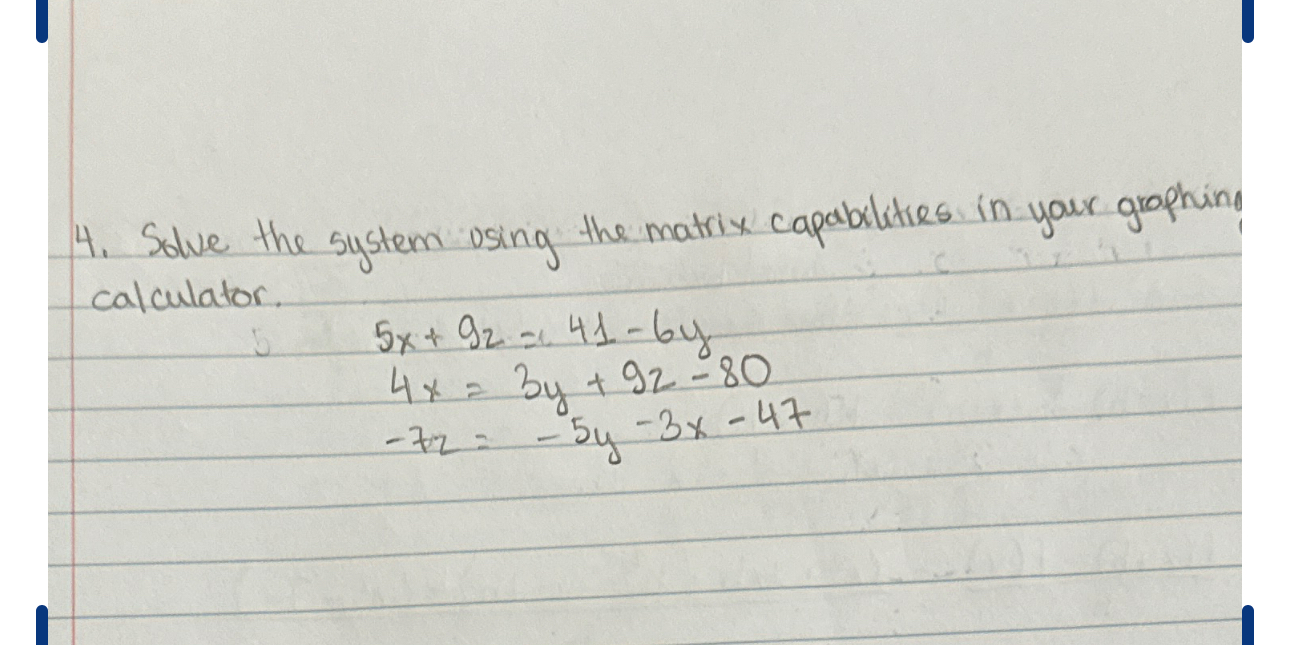 4. Solve the system using the matrix capabilities in your graphing
calculator.
5x + 9z = 41 - 6y
4x = 3y + 9z - 80
-7z = -5y -3x - 47